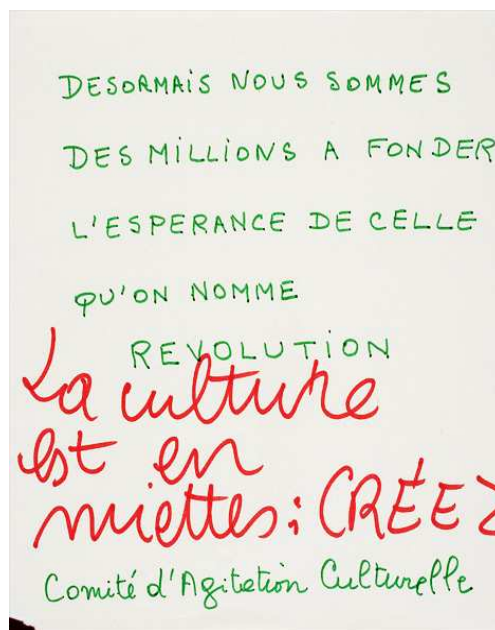 DESORMAIS NOUS SOMMES
DES MILLIONS A FONDER
L'ESPERANCE DE CELLE
QU'ON NOMME
REVOLUTION
La culture
est en
miettes : CRÉEZ
Comité d'Agitation Culturelle